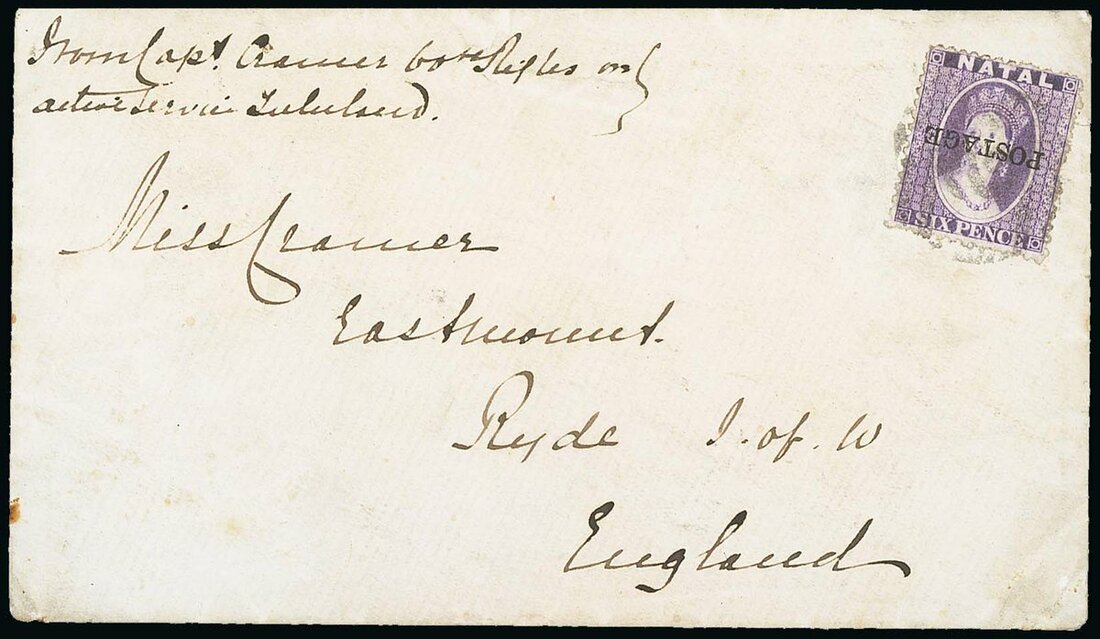 From Capt. Cramer 60th Rifles on
active service Zululand.
NATAL
POSTAGE
SIX PENCE
Miss Cramer
Eastmount.
Ryde I. of. W
England